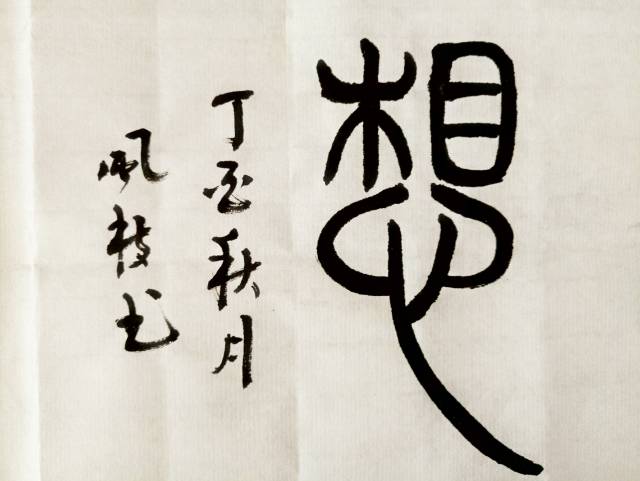 想
丁酉秋月
风枝书